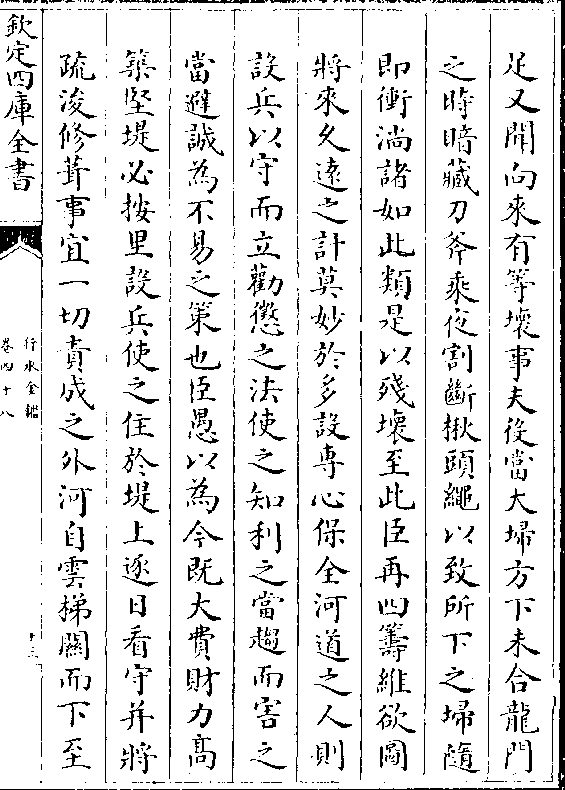 足又聞向來有等壞事夫役當大埽方下未合龍門
之時暗藏刀斧乘夜割斷揪頭繩以致所下之埽隨
即衝淌諸如此類是以殘壞至此臣再四籌維欲圖
將來久遠之計莫妙於多設專心保全河道之人則
設兵以守而立勸懲之法使之知利之當趨而害之
當避誠為不易之策也臣愚以為今既大費財力高
築堅堤必按里設兵使之住於堤上逐日看守并將
疏浚修葺事宜一切責成之外河自雲梯關而下至
欽定四庫全書
行水金鑑
卷四十八
十三